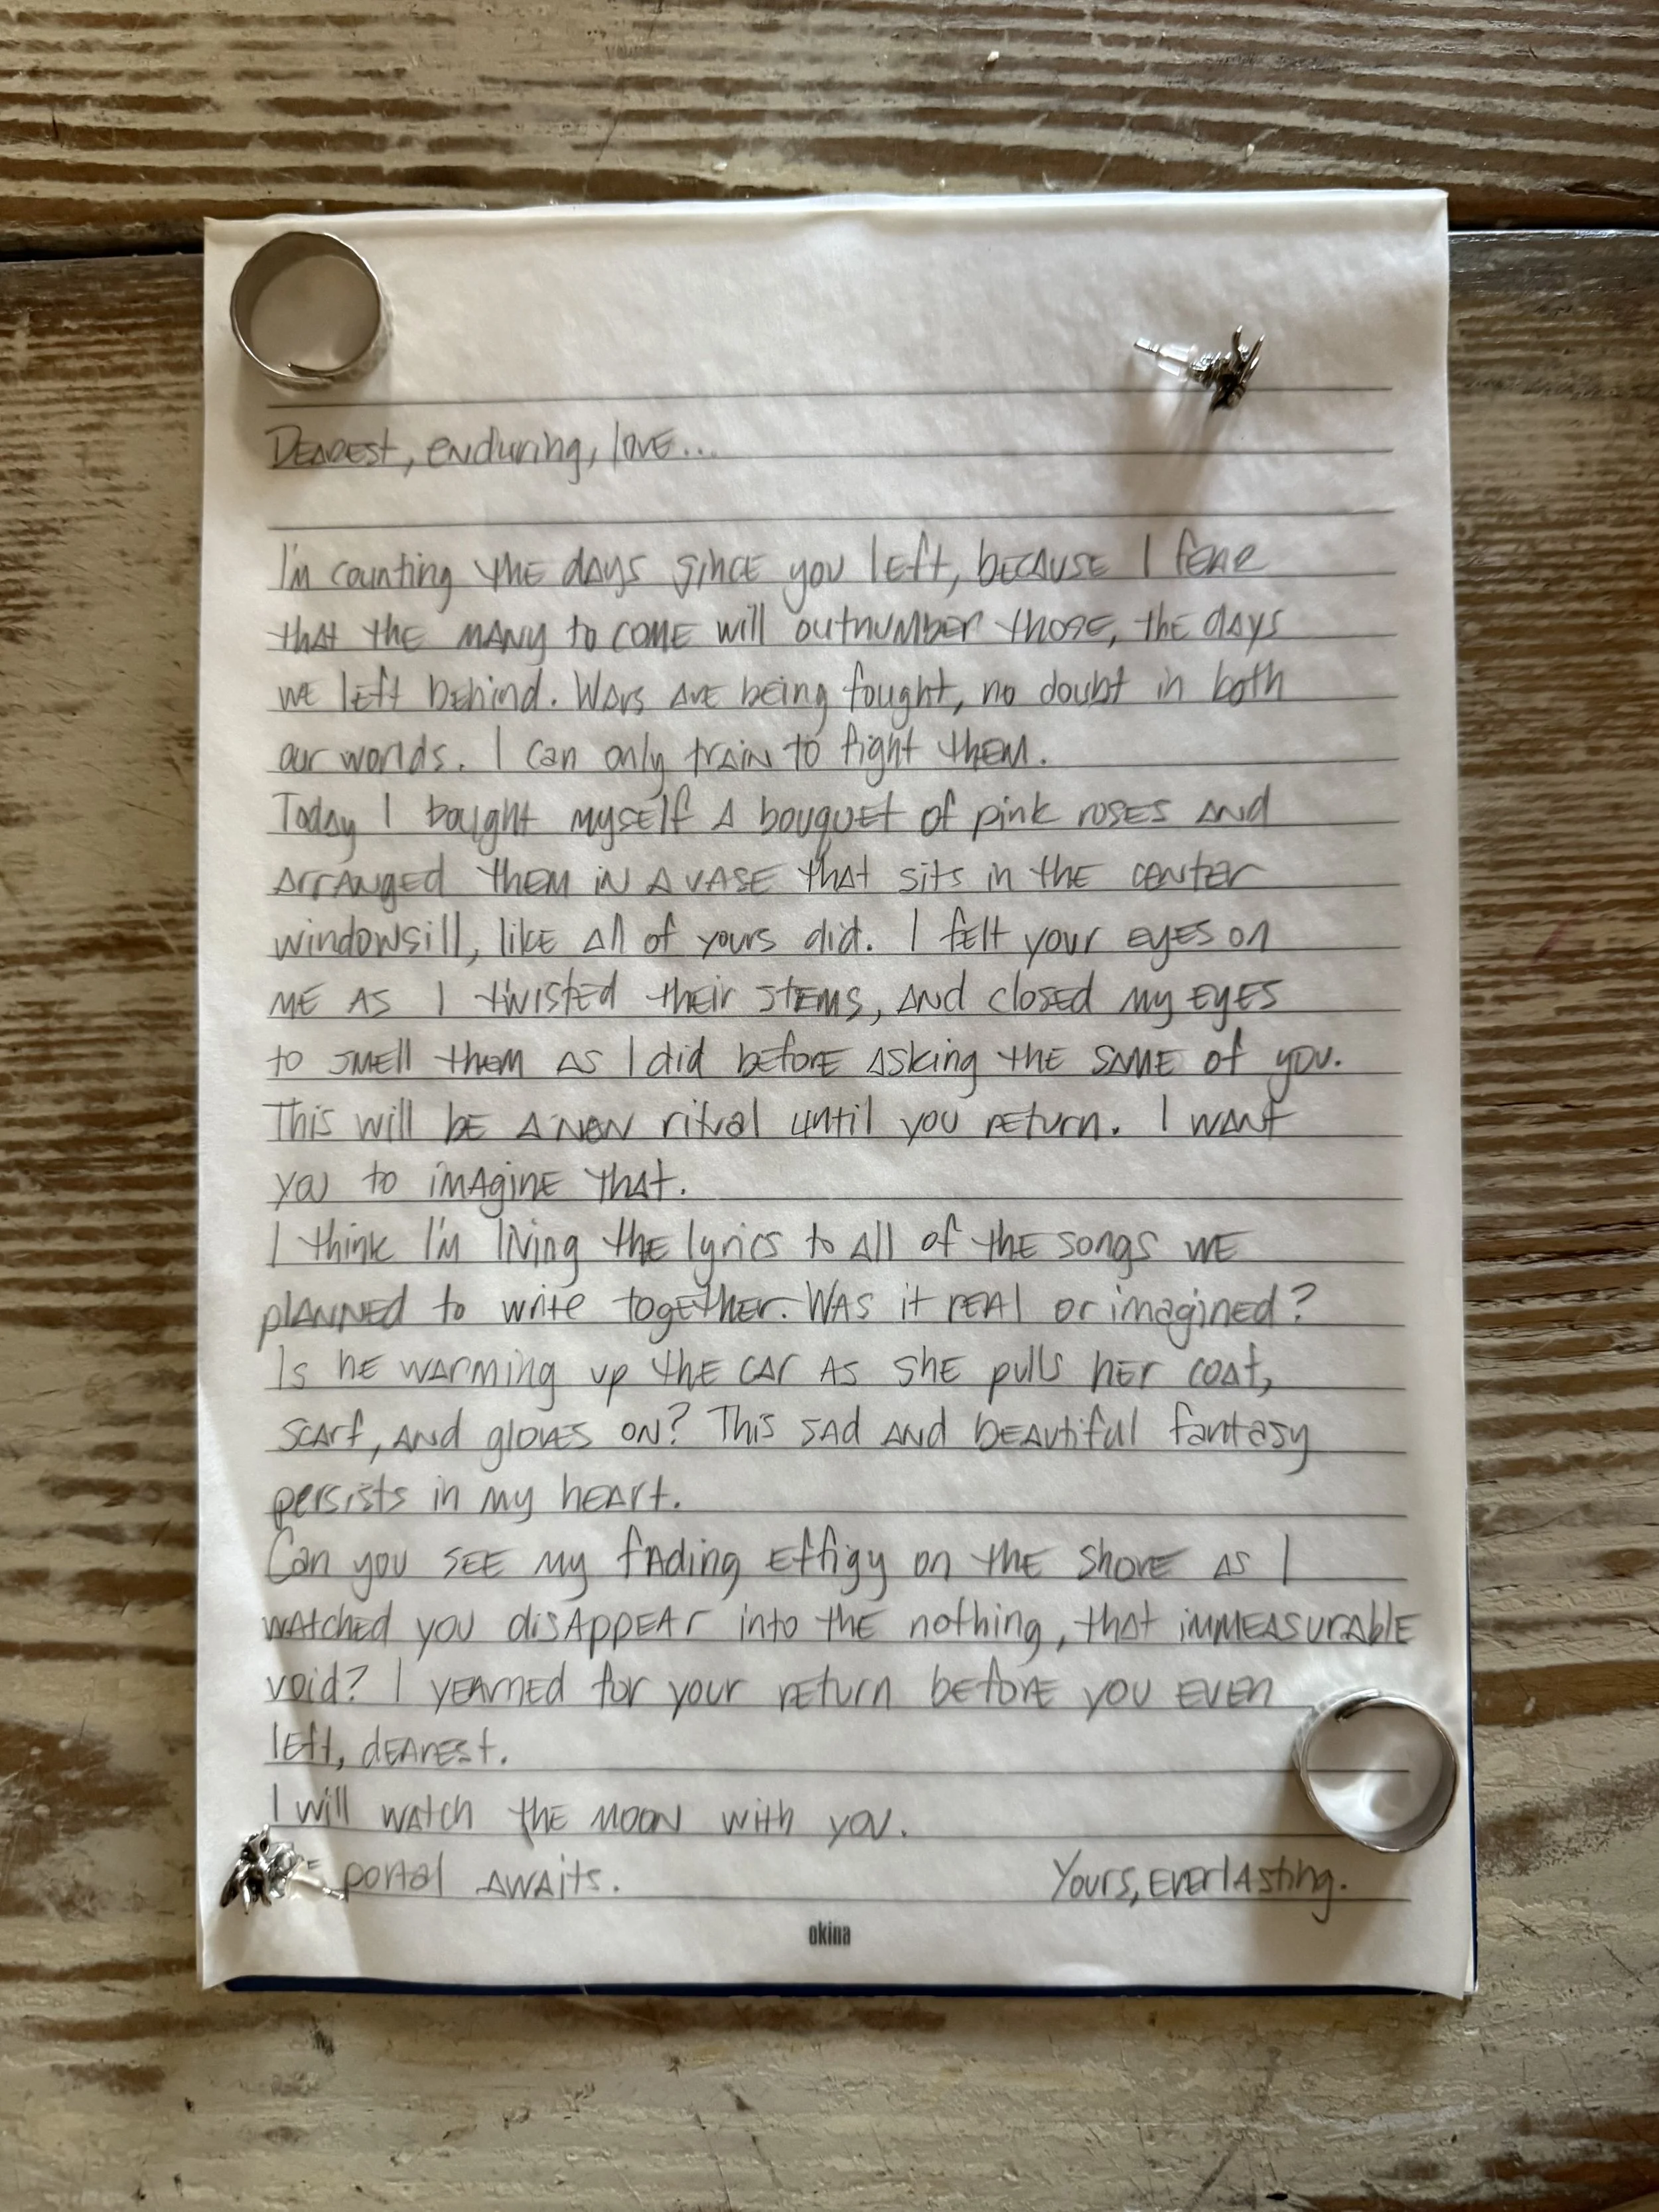 Dearest, enduring, love...
I'm counting the days since you left, because I fear
that the many to come will outnumber those, the days
we left behind. Wars are being fought, no doubt in both
our worlds. I can only train to fight them.
Today I bought myself a bouquet of pink roses and
arranged them in a vase that sits in the center
windowsill, like all of yours did. I felt your eyes on
me as I twisted their stems, and closed my eyes
to smell them as I did before asking the same of you.
This will be a new ritual until you return. I want
you to imagine that.
I think I'm living the lyrics to all of the songs we
planned to write together. Was it real or imagined?
Is he warming up the car as she pulls her coat,
scarf, and gloves on? This sad and beautiful fantasy
persists in my heart.
Can you see my fading effigy on the shore as I
watched you disappear into the nothing, that immeasurable
void? I yearned for your return before you even
left, dearest.
I will watch the moon with you.
portal awaits. Yours, everlasting.
okina